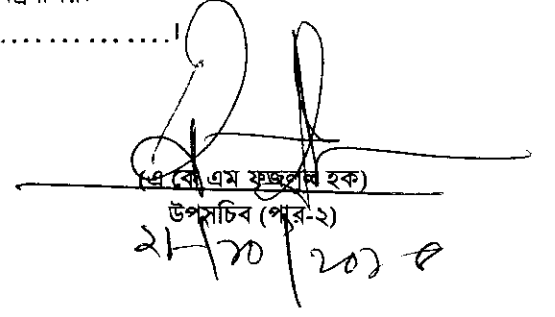 ...............।
(এ কে এম ফজলুল হক)
উপসচিব (পার-২)
২১/১০/২০১৮